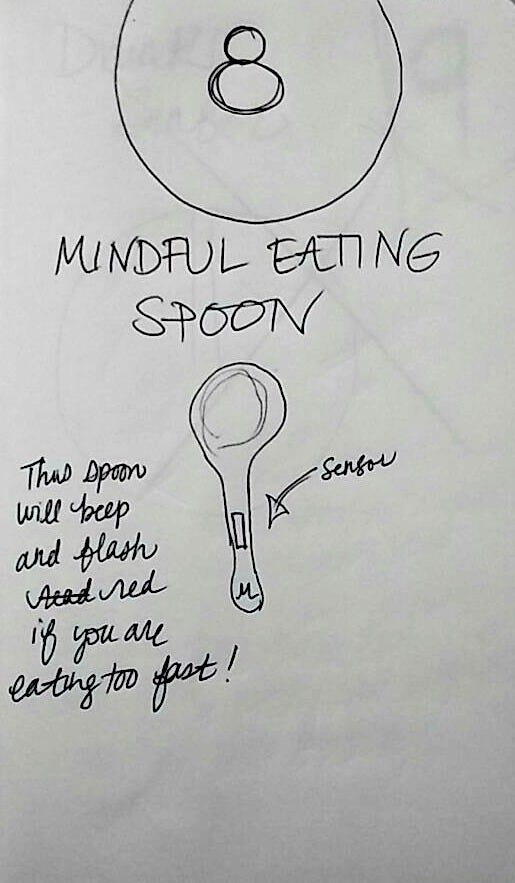 8
MINDFUL EATING
SPOON
This spoon
will beep
and flash
red
if you are
eating too fast!
sensor
M